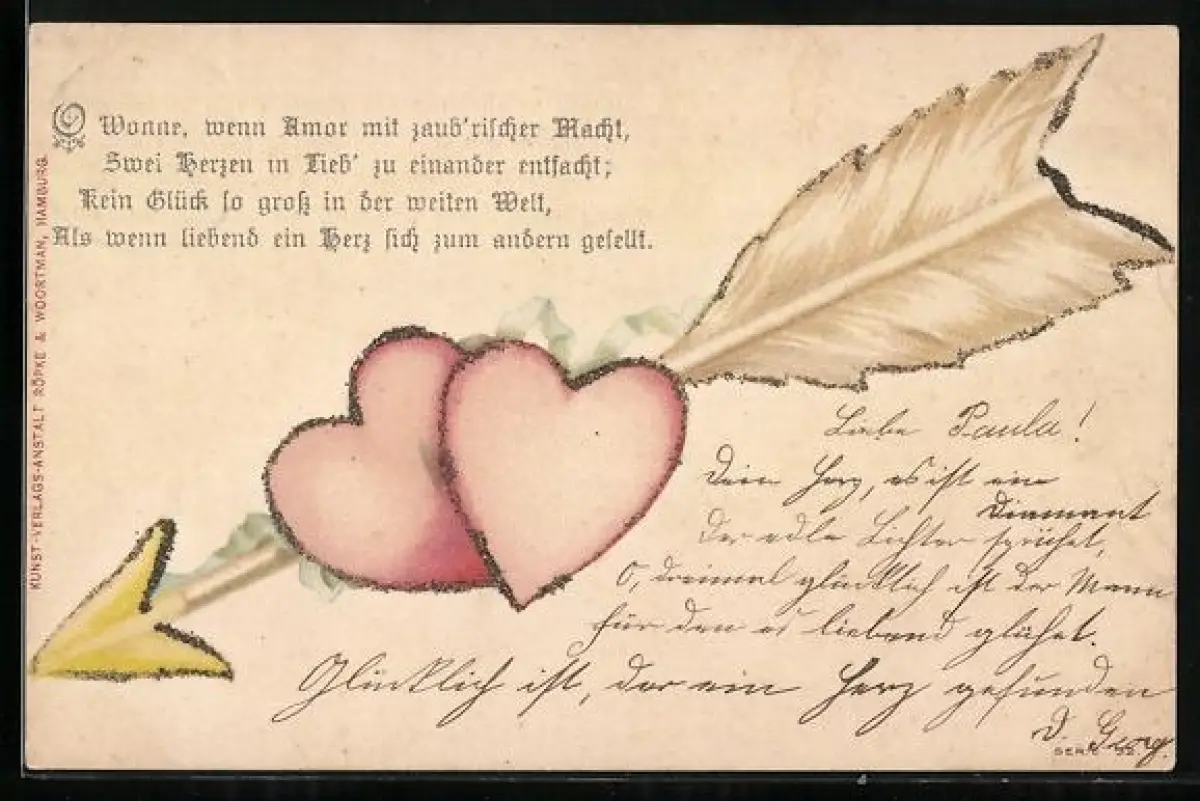 O Wonne, wenn Amor mit zaub'rischer Macht,
Zwei Herzen in Lieb' zu einander entfacht;
Kein Glück so groß in der weiten Welt,
Als wenn liebend ein Herz sich zum andern gesellt.
KUNST-VERLAGS-ANSTALT RÖPKE & WOORTMAN, HAMBURG.
Liebe Paula!
Dein Herz, es ist ein
Diamant
Der edle Lichter sprühet,
O, dreimal glücklich ist der Mann
für den es liebend glühet.
Glücklich ist, der ein Herz gefunden
D.